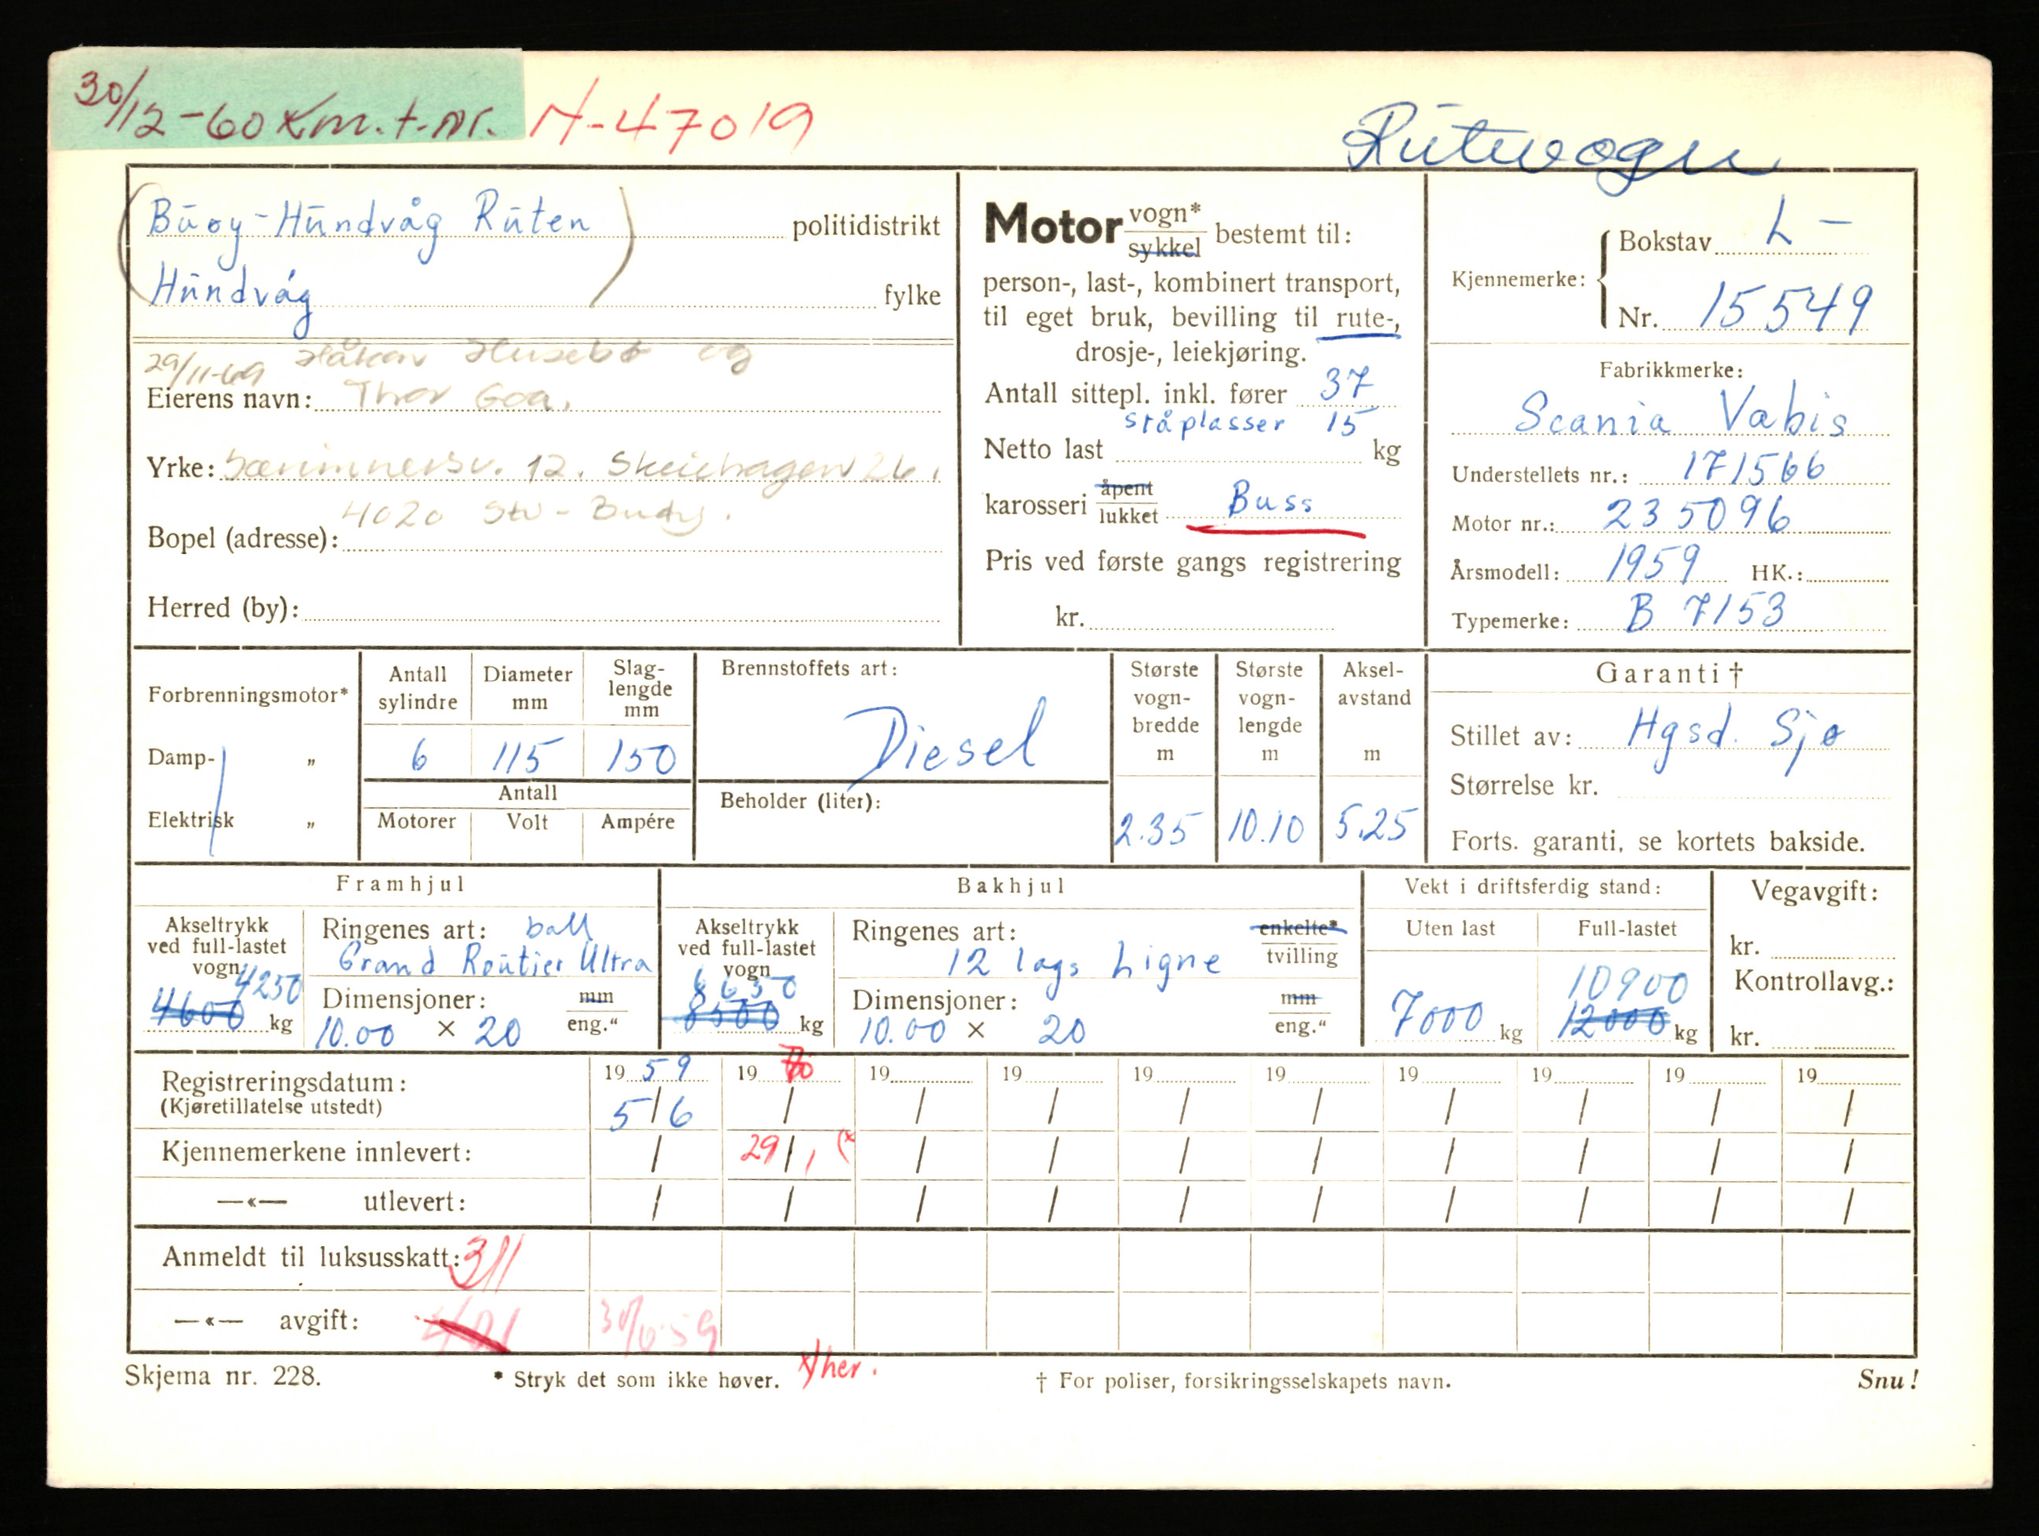 30/12-60 Km.t.nr. N-47019
Rutevogn
Buøy-Hundvåg Ruten politidistrikt
Hundvåg fylke
29/11-69 Håkon Husebø og
Eierens navn: Thor Goa.
Yrke: Særimnersv. 12. Skeiehagen 26,
4020 Stv - Buøy.
Bopel (adresse):
Herred (by):
Motor vogn* sykkel bestemt til:
person-, last-, kombinert transport,
til eget bruk, bevilling til rute-,
drosje-, leiekjøring.
Antall sittepl. inkl. fører 37
ståplasser 15
Netto last kg
karosseri åpent lukket Buss
Pris ved første gangs registrering
kr.
Kjennemerke: Bokstav L-
Nr. 15549
Fabrikkmerke:
Scania Vabis
Understellets nr.: 171566
Motor nr.: 235096
Årsmodell: 1959 HK.:
Typemerke: B 7153
Forbrenningsmotor*
Damp- „
Elektrisk „
Antall sylindre Diameter mm Slag-lengde mm
6 115 150
Antall
Motorer Volt Ampére
Brennstoffets art:
Diesel
Beholder (liter):
Største vogn-bredde m Største vogn-lengde m Aksel-avstand m
2.35 10.10 5.25
Garanti †
Stillet av: Hgsd. Sjø
Størrelse kr.
Forts. garanti, se kortets bakside.
Framhjul
Akseltrykk ved full-lastet vogn
4250
4600 kg
Ringenes art: ball
Grand Routier Ultra
Dimensjoner: mm eng.“
10.00 × 20
Bakhjul
Akseltrykk ved full-lastet vogn
6650
8500 kg
Ringenes art: enkelte* tvilling
12 lags Ligne
Dimensjoner: mm eng.“
10.00 × 20
Vekt i driftsferdig stand:
Uten last Full-lastet
10900
7000 kg 12000 kg
Vegavgift:
kr.
Kontrollavg.:
kr.
Registreringsdatum: 19 59 19 70 19 19 19 19 19 19 19 19
(Kjøretillatelse utstedt) 5/6 / / / / / / / / /
Kjennemerkene innlevert: / 29/1 (x / / / / / / / /
—«— utlevert: / / / / / / / / / /
Anmeldt til luksusskatt: 311
—«— avgift: 30/6 59
x) her.
Skjema nr. 228. * Stryk det som ikke høver. † For poliser, forsikringsselskapets navn. Snu!